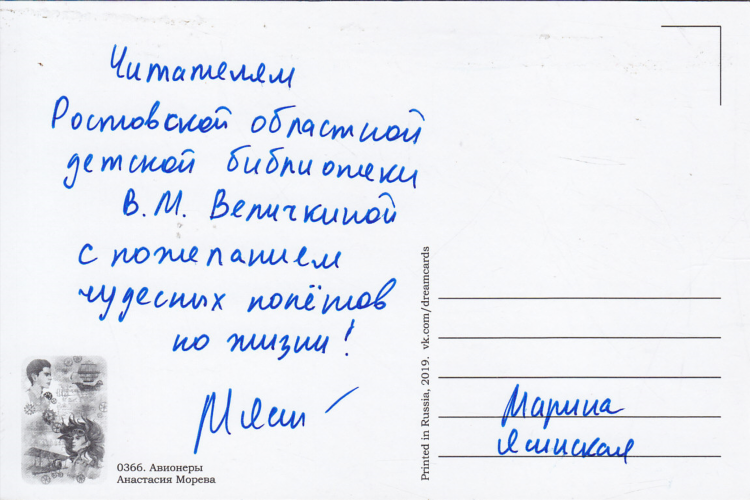 Читателям
Ростовской областной
детской библиотеки
В.М. Величкиной
с пожеланием
чудесных полётов
по жизни!
МЯси
0366. Авионеры
Анастасия Морева
Printed in Russia, 2019. vk.com/dreamcards
Марина
Ясинская